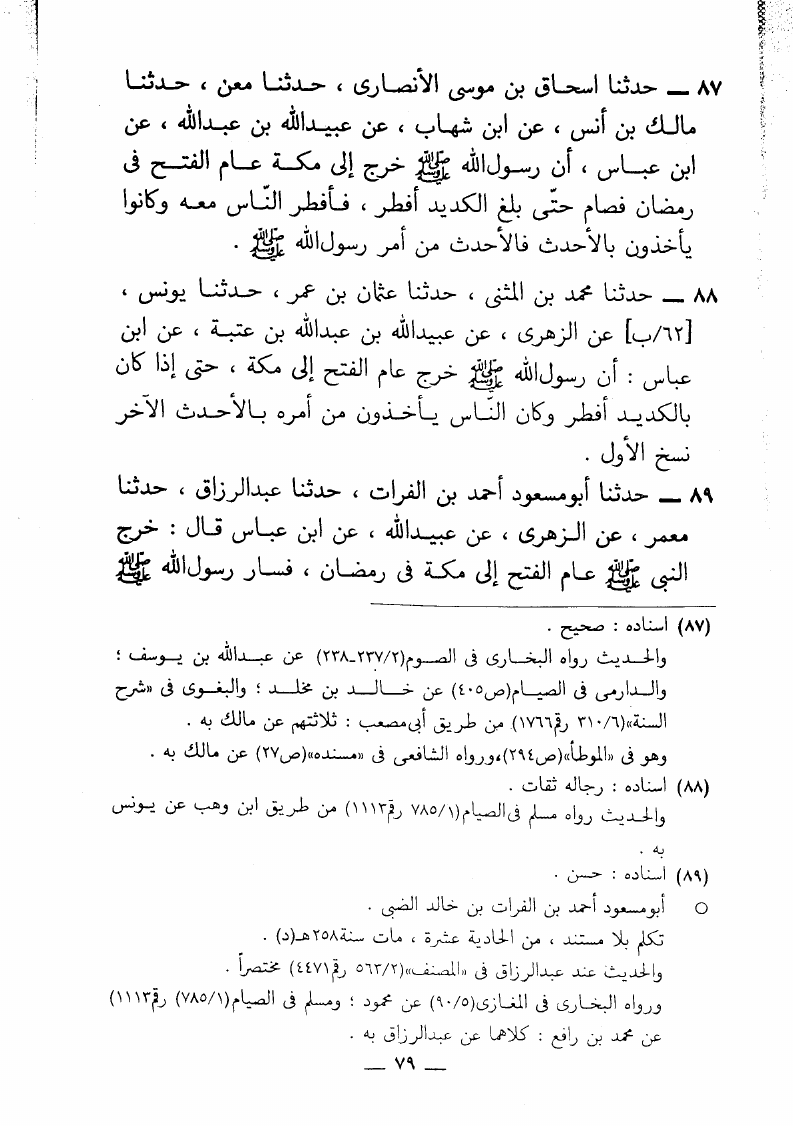 ٨٧ ــ حدثنا اسحاق بن موسى الأنصارى ، حدثنا معن ، حدثنا
مالك بن أنس ، عن ابن شهاب ، عن عبيدالله بن عبدالله ، عن
ابن عباس ، أن رسول الله ﷺ خرج إلى مكة عام الفتح فى
رمضان فصام حتّى بلغ الكديد أفطر ، فأفطر النّاس معه وكانوا
يأخذون بالأحدث فالأحدث من أمر رسول الله ﷺ .
٨٨ ــ حدثنا محمد بن المثنى ، حدثنا عثمان بن عمر ، حدثنا يونس ،
[٦٢/ب] عن الزهرى ، عن عبيدالله بن عبدالله بن عتبة ، عن ابن
عباس : أن رسول الله ﷺ خرج عام الفتح إلى مكة ، حتى إذا كان
بالكديد أفطر وكان النّاس يأخذون من أمره بالأحدث الآخر
نسخ الأول .
٨٩ ــ حدثنا أبو مسعود أحمد بن الفرات ، حدثنا عبدالرزاق ، حدثنا
معمر ، عن الزهرى ، عن عبيدالله ، عن ابن عباس قال : خرج
النبى ﷺ عام الفتح إلى مكة فى رمضان ، فسار رسول الله ﷺ
(٨٧) اسناده : صحيح .
والحديث رواه البخارى فى الصوم(٢٣٧/٢ــ٢٣٨) عن عبدالله بن يوسف ؛
والدارمى فى الصيام(ص٤٠٥) عن خالد بن مخلد ؛ والبغوى فى «شرح
السنة»(٣١٠/٦ رقم١٧٦٦) من طريق أبى مصعب : ثلاثتهم عن مالك به .
وهو فى «الموطأ»(ص٢٩٤)، ورواه الشافعى فى «مسنده»(ص٢٧) عن مالك به .
(٨٨) اسناده : رجاله ثقات .
والحديث رواه مسلم فى الصيام(٧٨٥/١ رقم١١١٣) من طريق ابن وهب عن يونس
به .
(٨٩) اسناده : حسن .
○ أبو مسعود أحمد بن الفرات بن خالد الضبى .
تكلم بلا مستند ، من الحادية عشرة ، مات سنة٢٥٨هـ(د) .
والحديث عند عبدالرزاق فى «المصنف»(٥٦٣/٢ رقم٤٤٧١) مختصراً .
ورواه البخارى فى المغازى(٩٠/٥) عن محمود ؛ ومسلم فى الصيام(٧٨٥/١) رقم١١١٣)
عن محمد بن رافع : كلاهما عن عبدالرزاق به .
ــ ٧٩ ــ